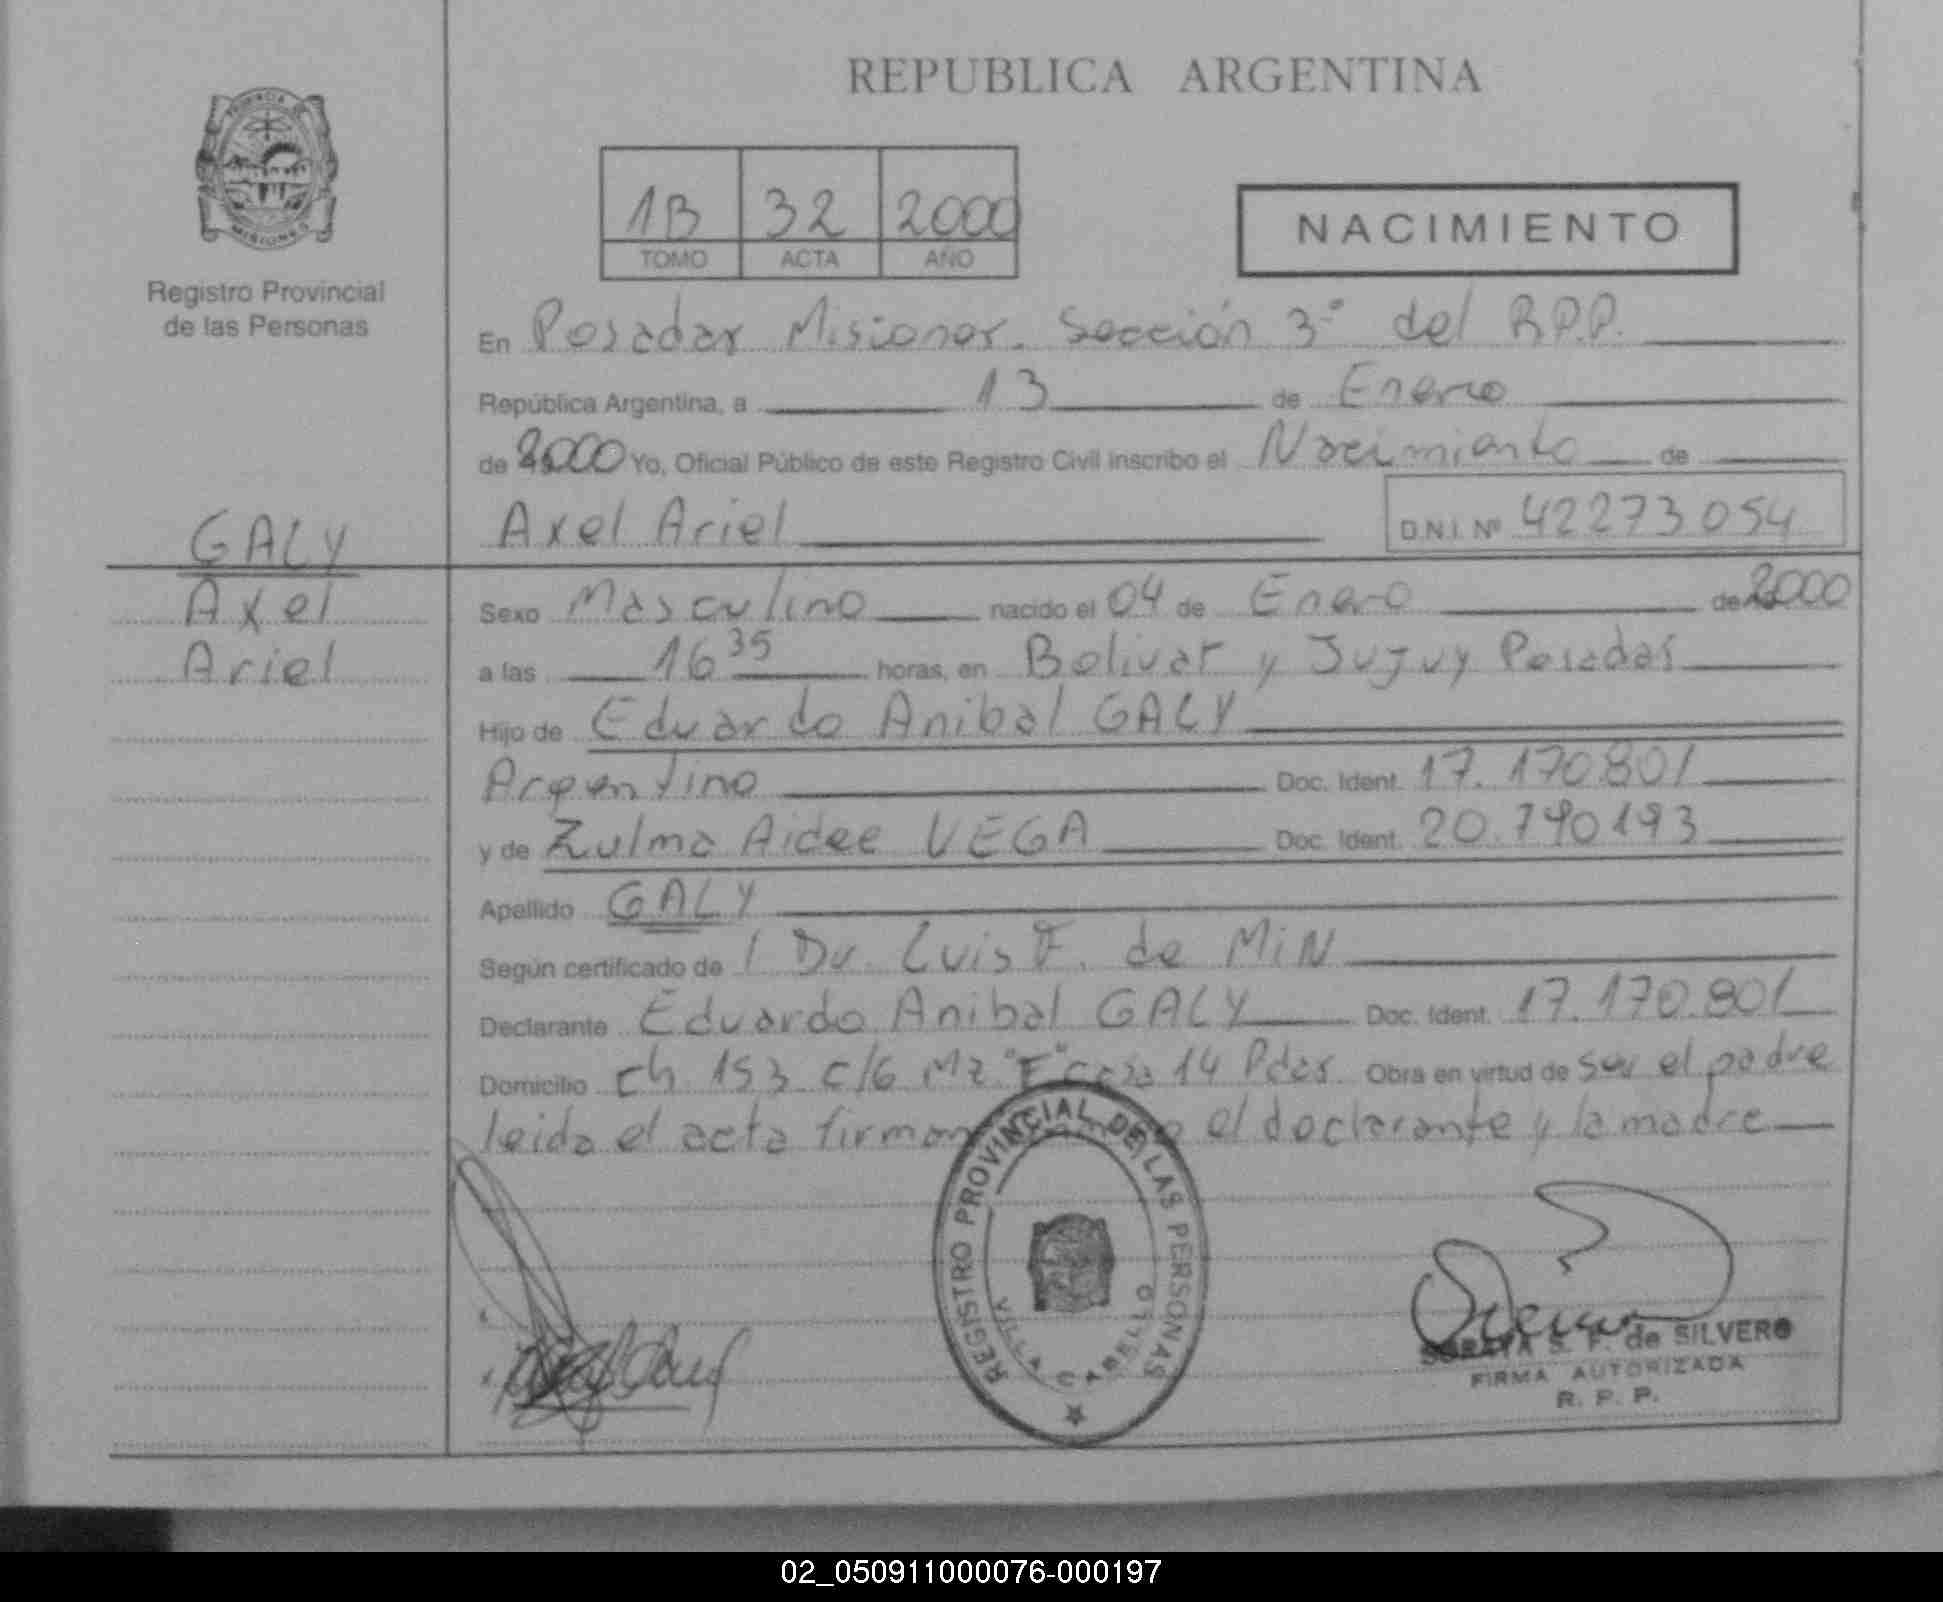 REPUBLICA ARGENTINA
PROVINCIA DE MISIONES
Registro Provincial
de las Personas
1B 32 2000
TOMO ACTA AÑO
NACIMIENTO
En Posadas Misiones. Sección 3º del R.P.P.
República Argentina, a 13 de Enero
de 2000 Yo, Oficial Público de este Registro Civil inscribo el Nacimiento de
Axel Ariel D.N.I. Nº 42273054
GALY
Axel
Ariel
Sexo Masculino nacido el 04 de Enero de 2000
a las 16 35 horas, en Bolivar y Jujuy Posadas
Hijo de Eduardo Anibal GALY
Argentino Doc. Ident. 17.170.801
y de Zulma Aidee VEGA Doc. Ident. 20.790193
Apellido GALY
Según certificado de l Dr. Luis F. de MiN
Declarante Eduardo Anibal GALY Doc. Ident. 17.170.801
Domicilio ch 153 c/6 Mz "F" casa 14 Pdas. Obra en virtud de ser el padre
leida el acta firman el declarante y la madre
REGISTRO PROVINCIAL DE LAS PERSONAS
VILLA CABELLO
SORAYA S. F. de SILVERO
FIRMA AUTORIZADA
R. P. P.
02_050911000076-000197